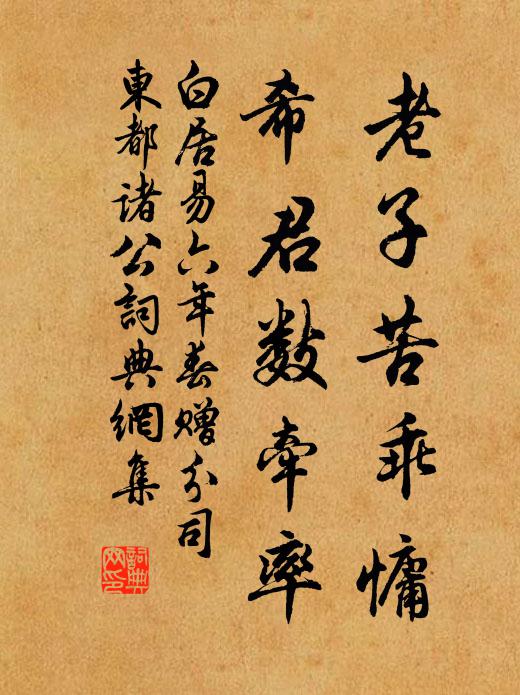 老子苦乖慵
希君数牽率
白居易六年春贈分司
東都諸公詞典網集
詞典
网印